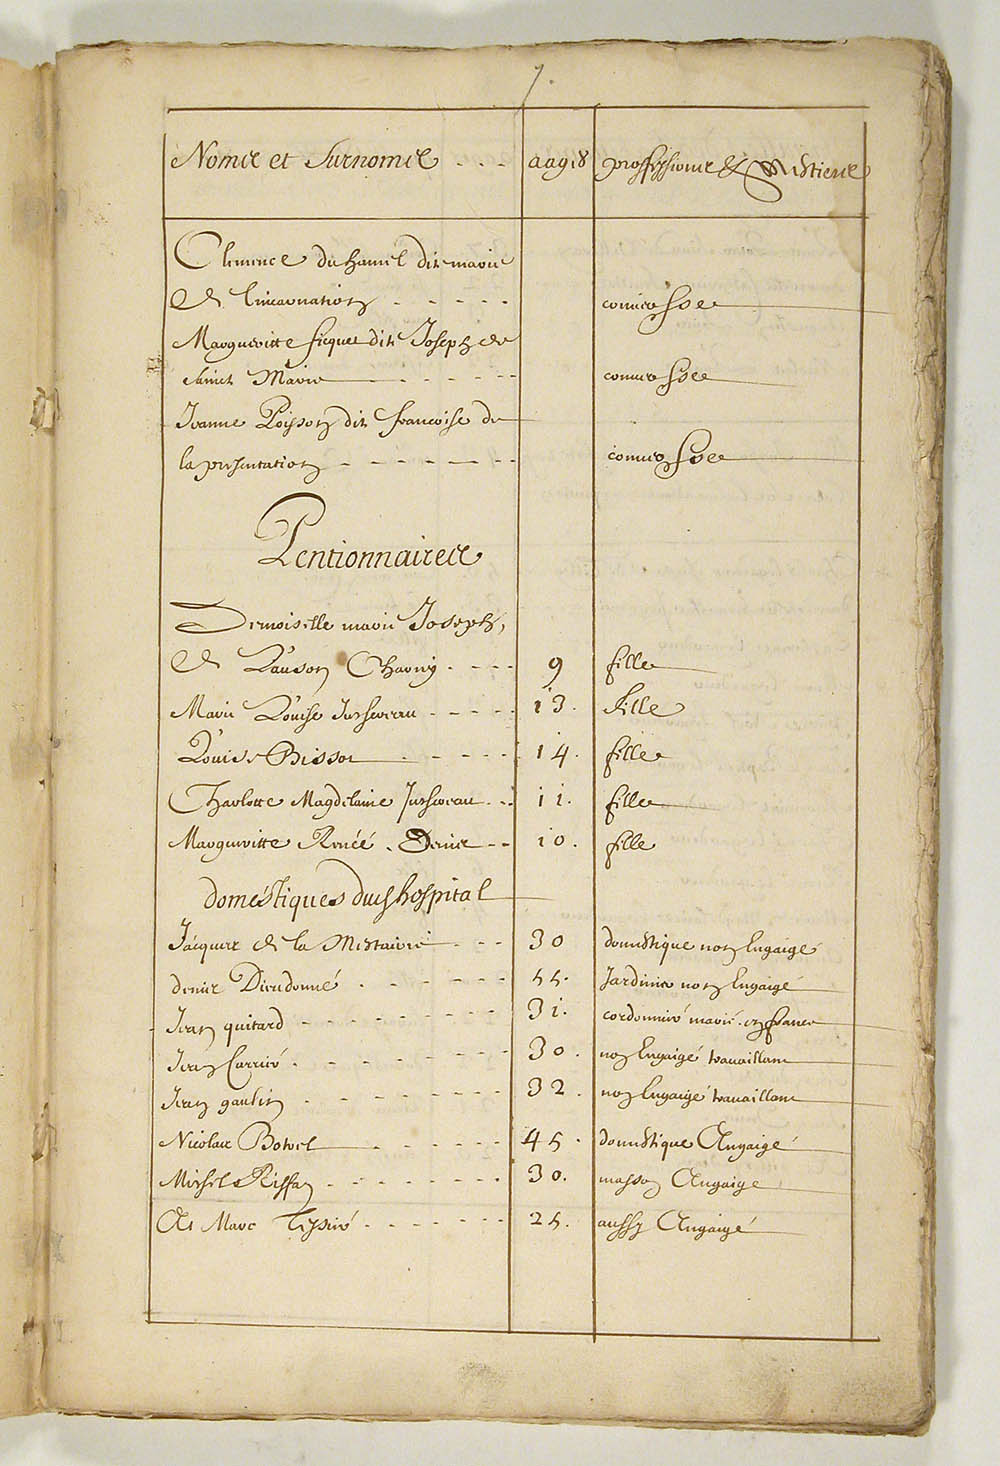 7.
Noms et Surnoms - - - aages proffessions & Mestiers
Clemence du hamel ditte marie
de lincarnation - - - - - converse Soe
Margueritte ficquet ditte Joseph de
Sainte Marie - - - - - converse Soe
Jeanne Poisson ditte francoise de
la presentation - - - - - - converse Soe
Pentionnaires
Demoiselle marie Joseph,
de Lauson Charny - - - - 9 fille
Marie Louise Juchereau - - - - - 13. fille
Louise Bissot - - - - - 14. fille
Charlotte Magdelaine Juchereau - - 11. fille
Margueritte Renée . Denis - - 10. fille
domestiques dud hospital
Jacques de la Mestairie - - - 30 domestique non Engaigé
denis Dieudonné - - - - - - 55. Jardinier non Engaigé
Jean quitard - - - - - - - - 31. cordonnier marié en france
Jean Carrier - - - - - - - 30. non Engaigé travaillant
Jean gaultin - - - - - - - - 32. non Engaigé travaillant
Nicolas Botrel - - - - - - 45. domestique Angaigé
Michel Riffan - - - - - - - - 30. masson Angaigé
Et Marc Tessier - - - - - - - 25. aussy Angaigé